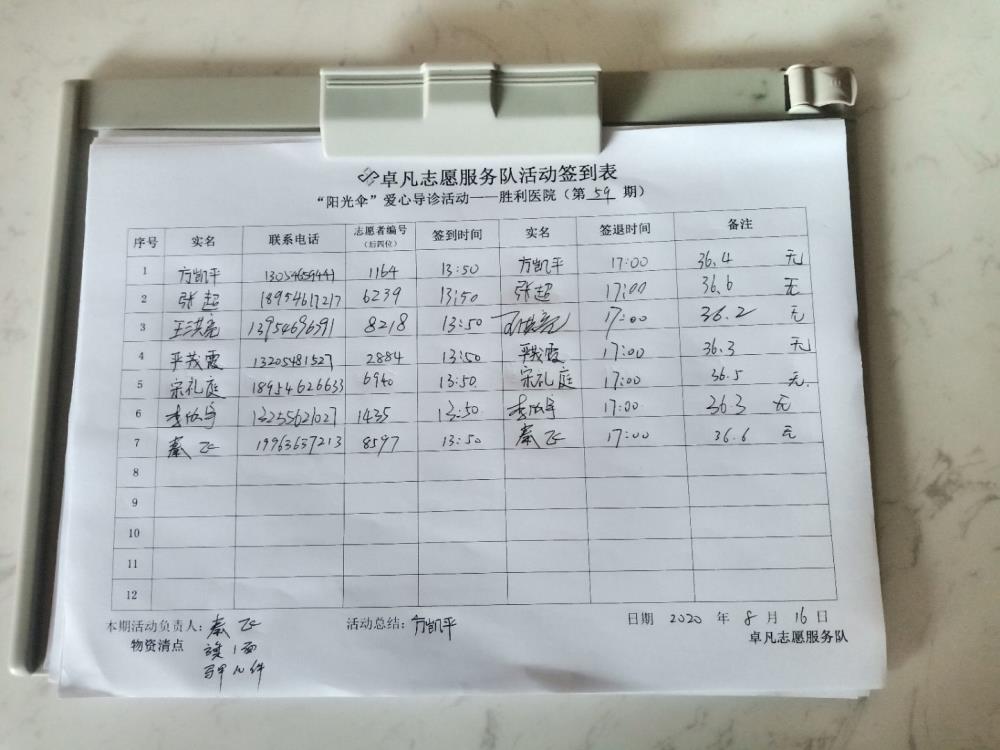 卓凡志愿服务队活动签到表
“阳光伞”爱心导诊活动——胜利医院（第 59 期）
序号 实名 联系电话 志愿者编号（后四位） 签到时间 实名 签退时间 备注
1 方凯平 13054659441 1164 13:50 方凯平 17:00 36.4 无
2 张超 18954617217 6239 13:50 张超 17:00 36.6 无
3 王洪亮 13954696591 8218 13:50 王洪亮 17:00 36.2 无
4 平茂霞 13205481527 2884 13:50 平茂霞 17:00 36.3 无
5 宋礼庭 18954626633 6940 13:50 宋礼庭 17:00 36.5 无.
6 13255621027 1435 13:50 17:00 36.3 无
7 秦飞 19963657213 8597 13:50 秦飞 17:00 36.6 无
8
9
10
11
12
本期活动负责人：秦飞 活动总结：方凯平 日期 2020 年 8 月 16 日
物资清点 旗1面 卓凡志愿服务队
件